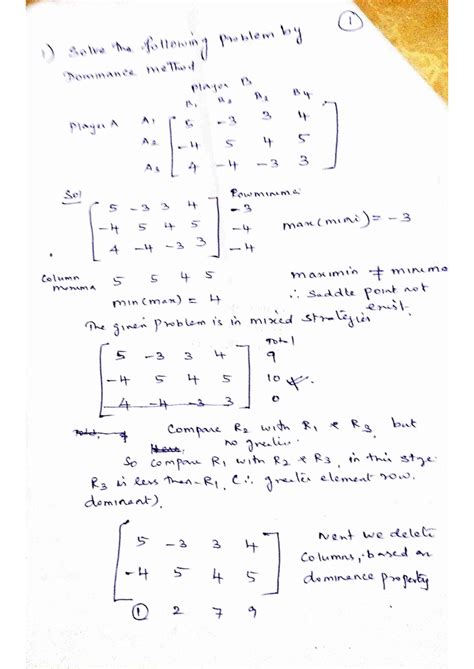 ①
1) Solve the following Problem by
Dominance method
Player B
B₁ B₂ B₃ B4
Player A A₁ 5 -3 3 4
A₂ -4 5 4 5
A₃ 4 -4 -3 3
Sol Row minima
5 -3 3 4 -3
-4 5 4 5 -4 max(mini) = -3
4 -4 -3 3 -4
Column 5 5 4 5 maximin ≠ minima
min(max) = 4 ∴ Saddle point not
exist.
The given Problem is in mixed strategies
Total
5 -3 3 4 9
-4 5 4 5 10
4 -4 -3 3 0
Compare R₂ with R₁ & R₃, but
no greater.
So compare R₁ with R₂ & R₃, in this stge
R₃ is less than R₁. (∴ greater element row.
dominant).
5 -3 3 4 Next we delete
-4 5 4 5 columns, based on
dominance property
① 2 7 9